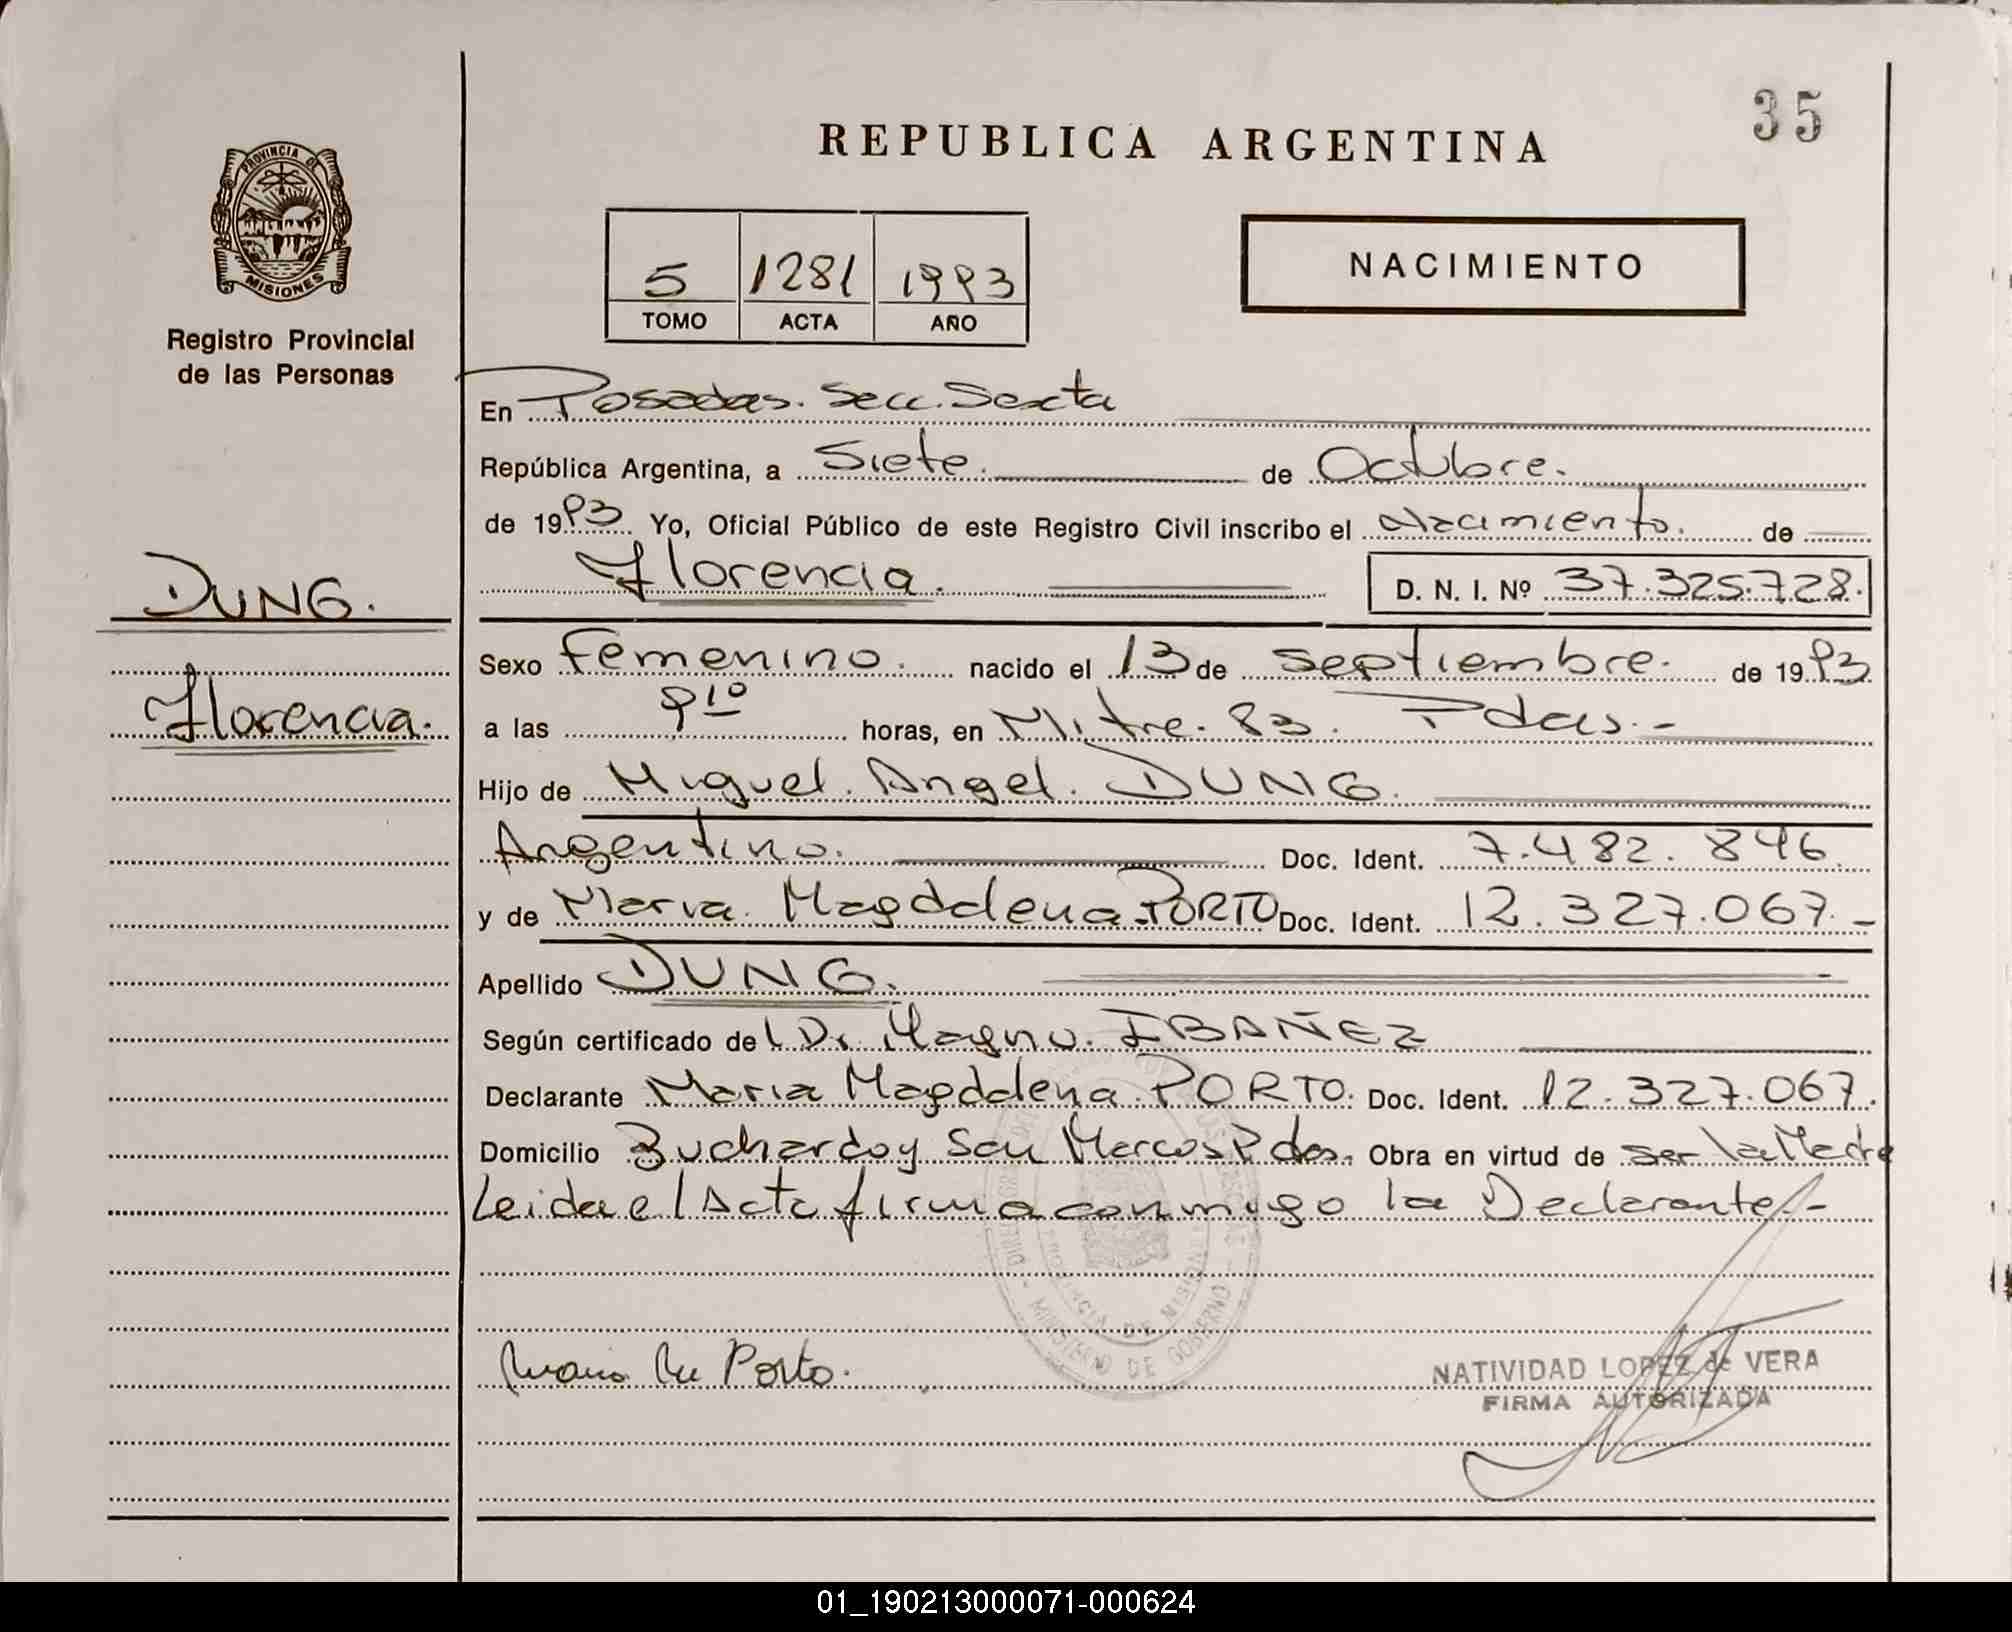 35
REPUBLICA ARGENTINA
PROVINCIA DE
MISIONES
Registro Provincial
de las Personas
5 1281 1993
TOMO ACTA AÑO
NACIMIENTO
En Posadas. Secc. Sexta
República Argentina, a Siete. de Octubre.
de 1993 Yo, Oficial Público de este Registro Civil inscribo el Nacimiento. de
Florencia. D. N. I. Nº 37.325.728.
DUNG.
Florencia.
Sexo Femenino. nacido el 13 de Septiembre. de 1993
a las 9 10 horas, en Mitre. 83. Pdas.-
Hijo de Miguel. Angel. DUNG.
Argentino. Doc. Ident. 7.482.846
y de Maria. Magdalena. PORTO Doc. Ident. 12.327.067.-
Apellido DUNG.
Según certificado del Dr Magno. IBAÑEZ
Declarante Maria Magdalena. PORTO. Doc. Ident. 12.327.067.
Domicilio Buchardo y San Marcos Pdas. Obra en virtud de ser la Madre
Leida el Acta firma conmigo la Declarante.-
MINISTERIO DE GOBIERNO
PROVINCIA DE MISIONES
Maria M Porto.
NATIVIDAD LOPEZ de VERA
FIRMA AUTORIZADA
01_190213000071-000624